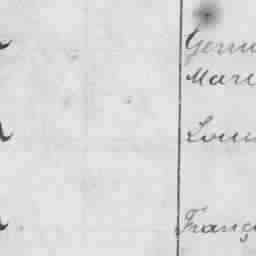 Germ
Mari
Loui
Franç